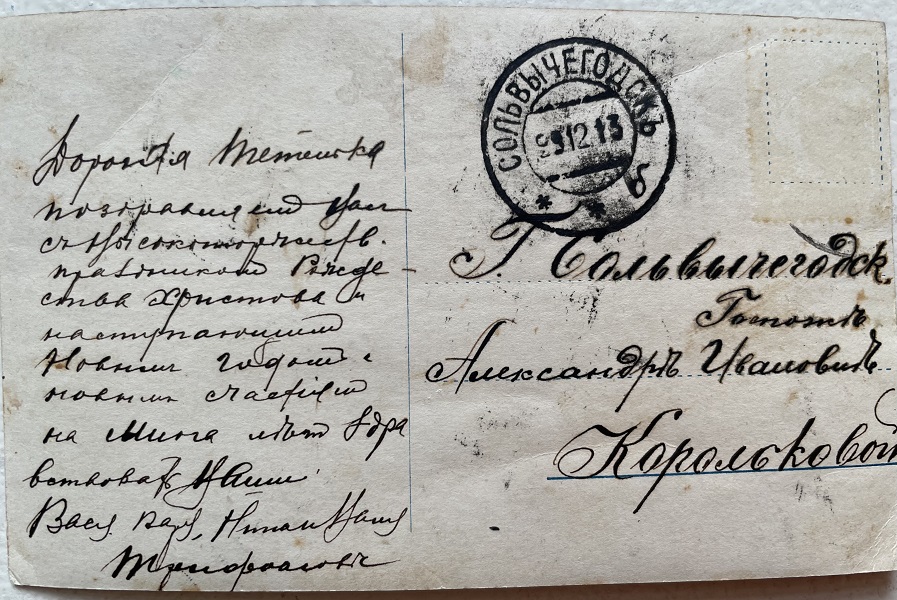 Дорогая Тетенька
поздравляем Вас
съ Высокоторжеств.
праздникомъ Рожде-
ства Христова и
наступающимъ
Новымъ годомъ и
новымъ счастіемъ
на многа лѣтъ Здра
вствовать Ваши
Вася, Варя, Нина и Ваня
СОЛЬВЫЧЕГОДСКЪ
12 13
б
Г. Сольвычегодск.
Госпожѣ
Александрѣ Ивановнѣ
Корольковой